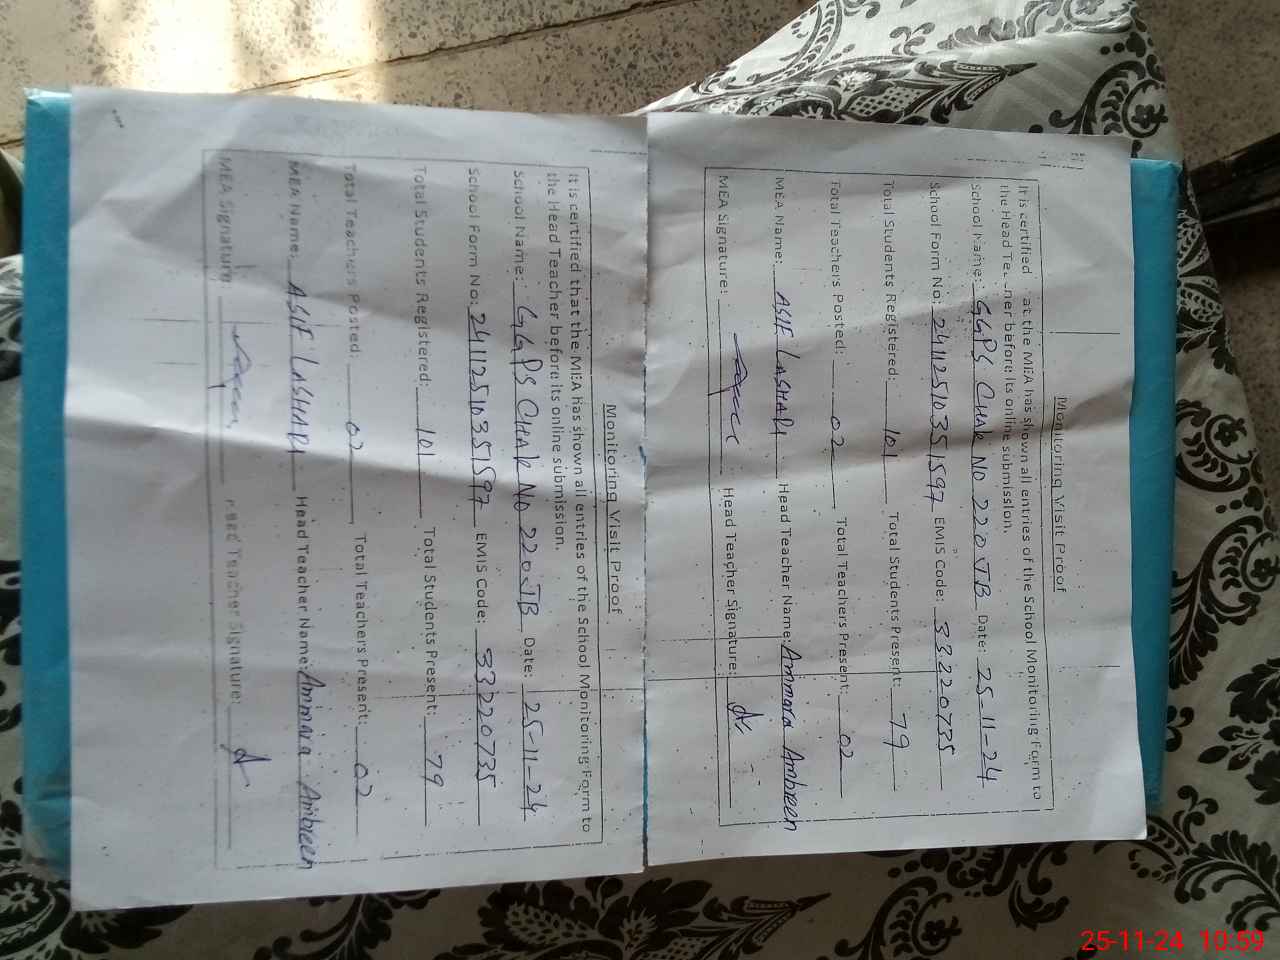 Monitoring Visit Proof
It is certified at the MEA has shown all entries of the School Monitoring Form to
the Head before its online submission.
School Name: GGPS CHAK NO 220 JB Date: 25-11-24
School Form No: 24112510351597 EMIS Code: 33220735
Total Students Registered: 101 Total Students Present: 79
Total Teachers Posted: 02 Total Teachers Present: 02
MEA Name: ASIF LASHARI Head Teacher Name: Ammara Ambreen
MEA Signature: Head Teacher Signature:
Monitoring Visit Proof
It is certified that the MEA has shown all entries of the School Monitoring Form to
the Head Teacher before its online submission.
School Name: GGPS CHAK NO 220 JB Date: 25-11-24
School Form No: 24112510351597 EMIS Code: 33220735
Total Students Registered: 101 Total Students Present: 79
Total Teachers Posted: 02 Total Teachers Present: 02
MEA Name: ASIF LASHARI Head Teacher Name: Ammara Ambreen
MEA Signature: Head Teacher Signature:
25-11-24 10:59